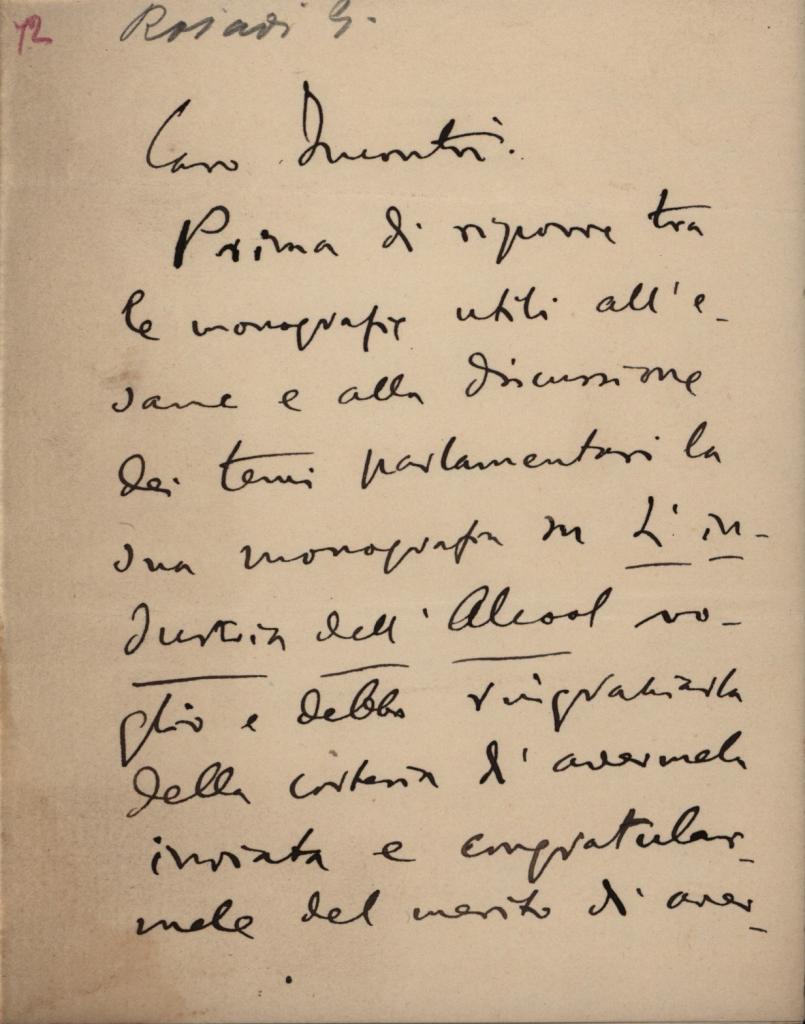 72 Rosadi G.
Caro Incontri.
Prima di riporre tra
le monografie utili all'e-
same e alla discussione
dei temi parlamentari la
sua monografia su L'in-
dustria dell'Alcool vo-
glio e debbo ringraziarla
della cortesia d'avermela
inviata e congratular-
mele del merito di aver-